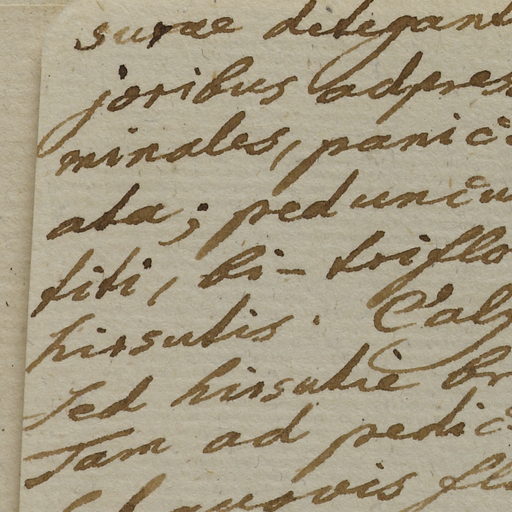 surae detegant
joribus adpres
minales, panic
ata; peduncu
titi, bi-triflo
hirsutis. Caly
Sed hirsutie br
Tam ad pedic
fl